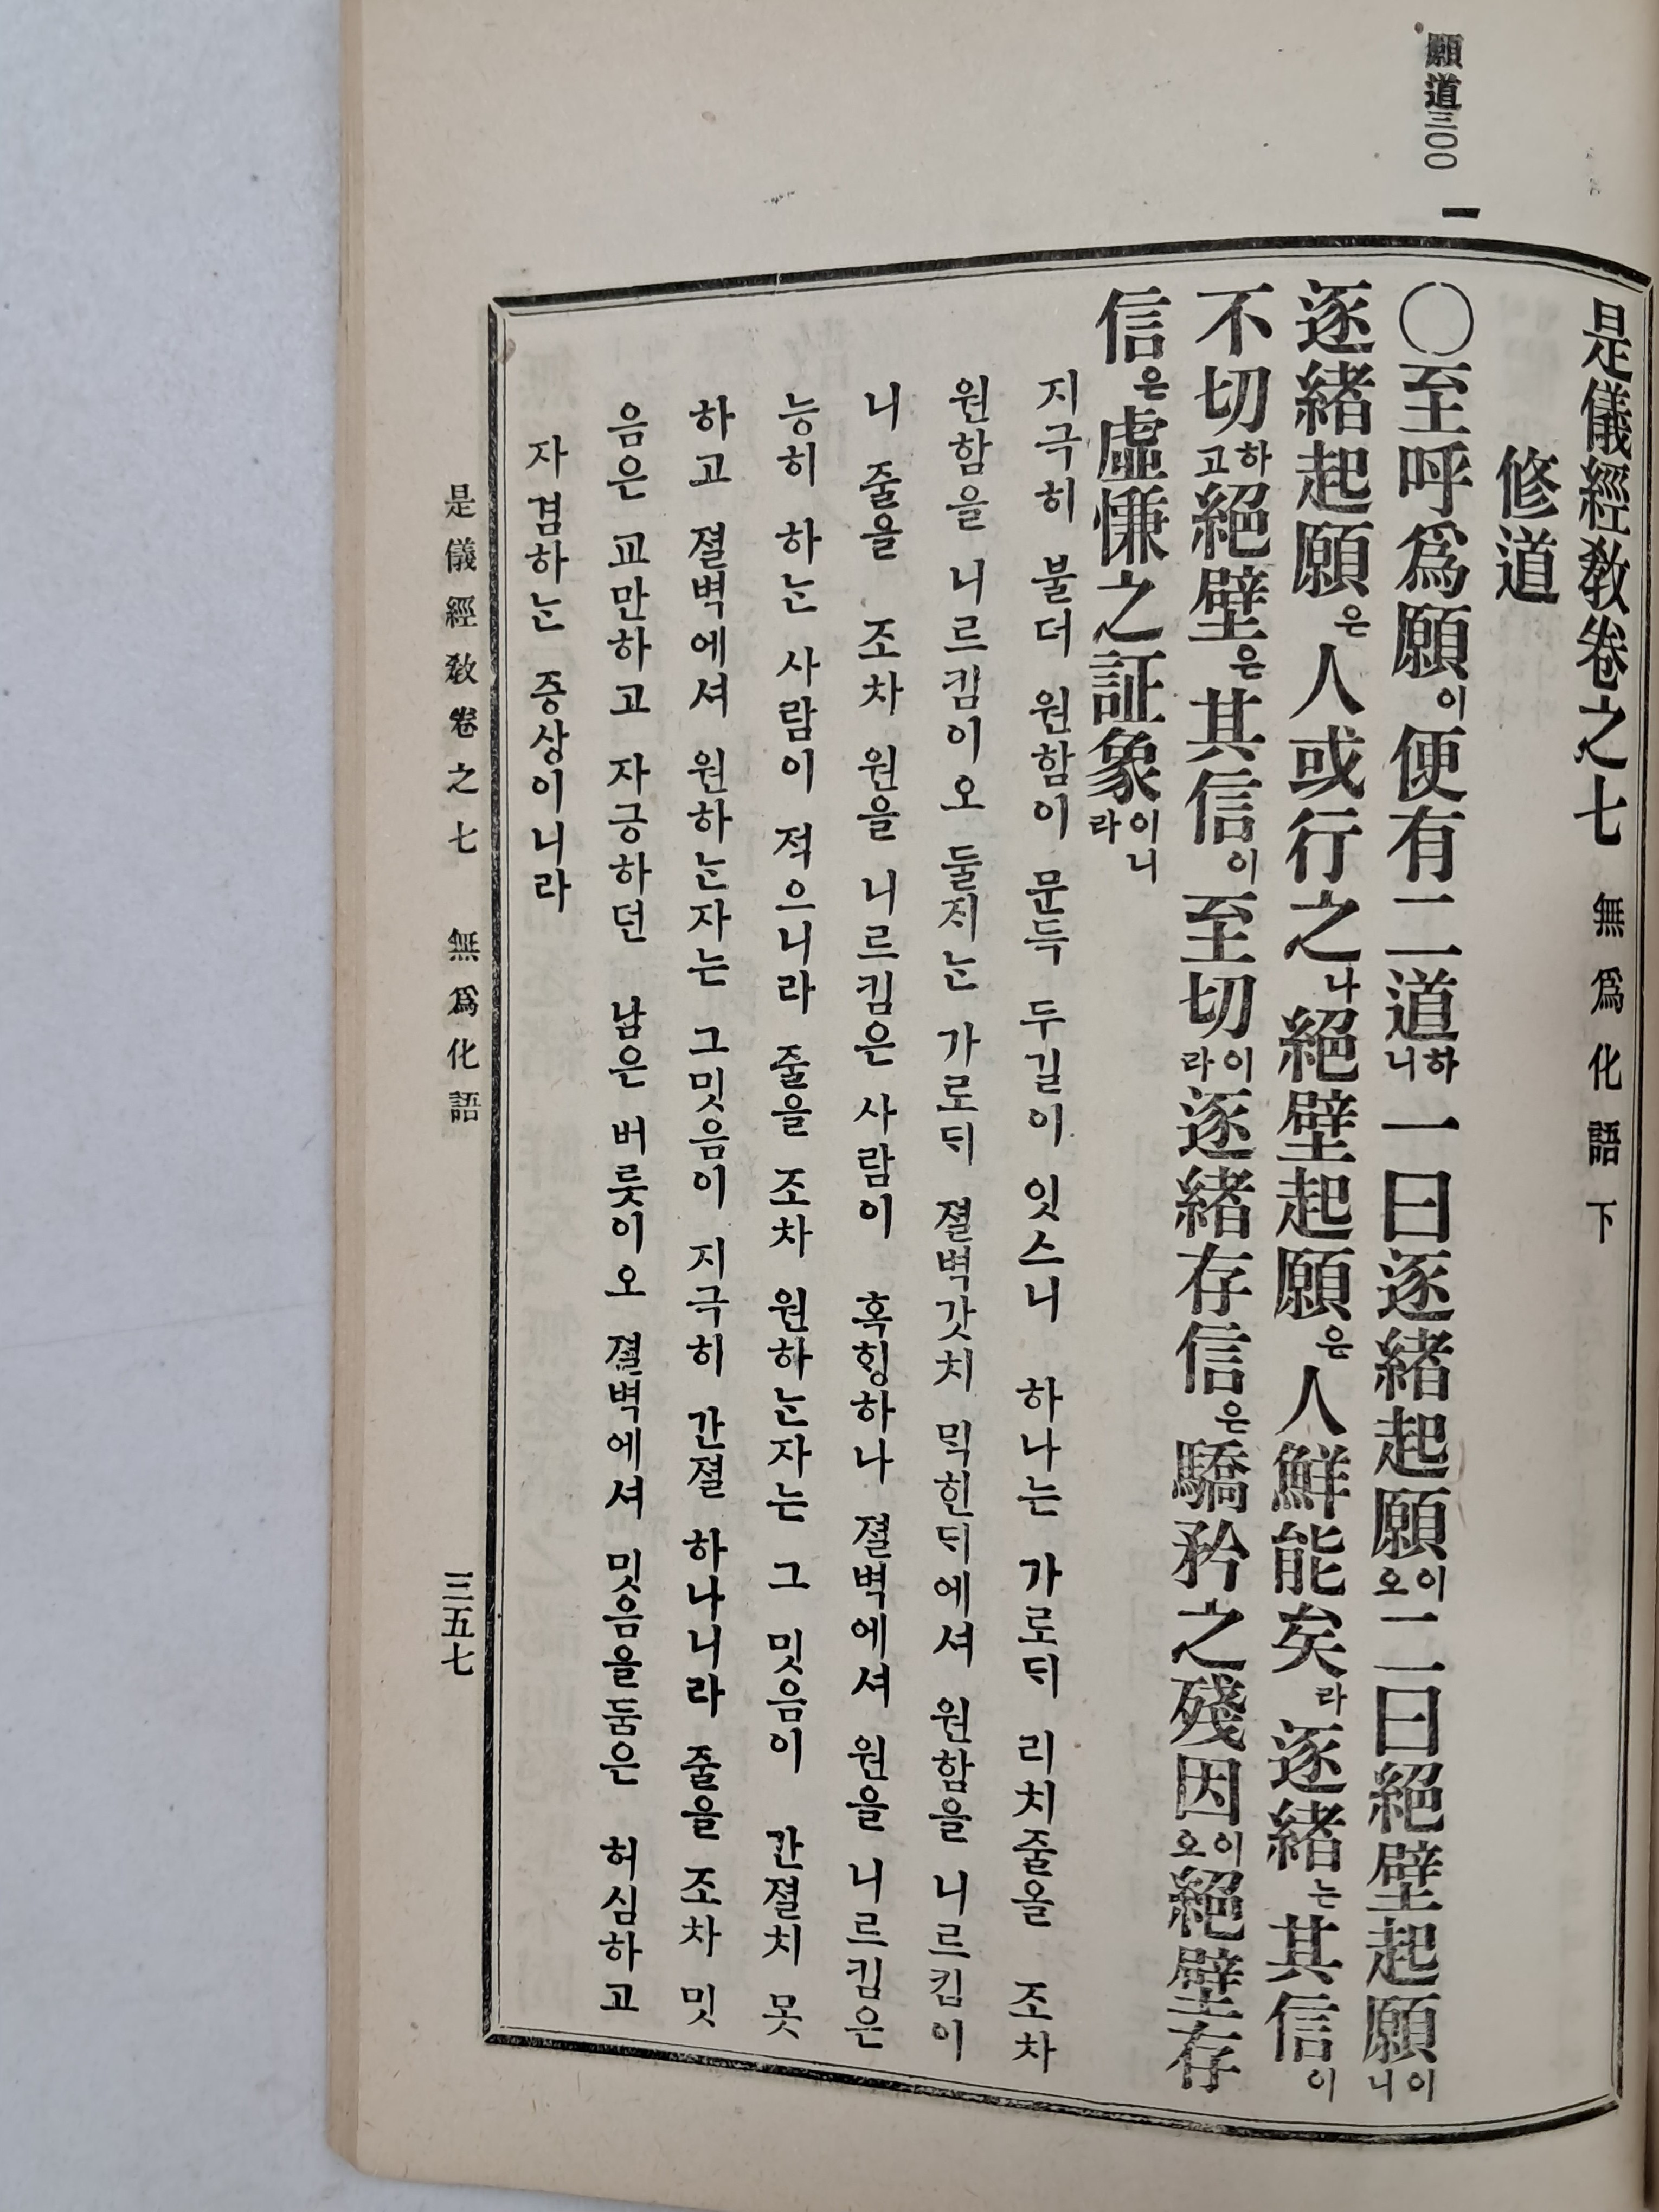 願道三〇〇
一
是儀經教卷之七 無爲化語 下
修道
〇至呼爲願이便有二道하니一曰逐緖起願이오二曰絕壁起願이니
逐緖起願은人或行之나絕壁起願은人鮮能矣라逐緖는其信이
不切하고絕壁은其信이至切이라逐緖存信은驕矜之殘因이오絕壁存
信은虛慊之証象이니라
지극히 불더 원함이 문득 두길이 잇스니 하나는 가로ᄃᆡ 리치줄을 조차
원함을 니르킴이오 둘ᄌᆡ는 가로ᄃᆡ 졀벽갓치 막힌ᄃᆡ에셔 원함을 니르킴이
니 줄을 조차 원을 니르킴은 사람이 혹ᄒᆡᆼ하나 졀벽에셔 원을 니르킴은
능히 하ᄂᆞᆫ 사람이 적으니라 줄을 조차 원하ᄂᆞᆫ자는 그 밋음이 간졀치 못
하고 졀벽에셔 원하ᄂᆞᆫ자는 그밋음이 지극히 간졀 하나니라 줄을 조차 밋
음은 교만하고 자긍하던 남은 버릇이오 졀벽에셔 밋음을둠은 허심하고
자겸하ᄂᆞᆫ 증상이니라
是儀經教卷之七 無爲化語 三五七